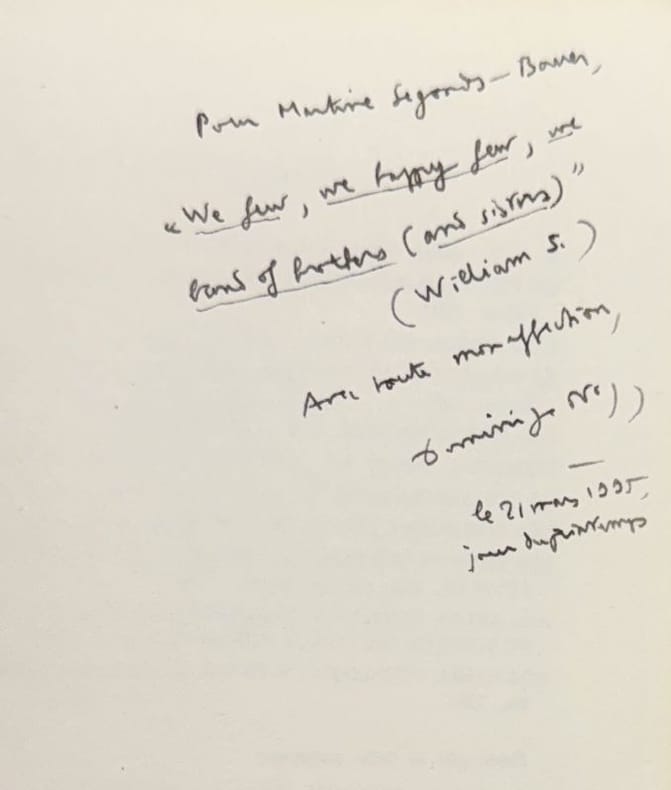 Pour Martine Segonds-Bauer,
« We few, we happy few, we
band of brothers (and sisters) »
(William S.)
Avec toute mon affection,
Dominique
le 21 mars 1995,
jour du printemps